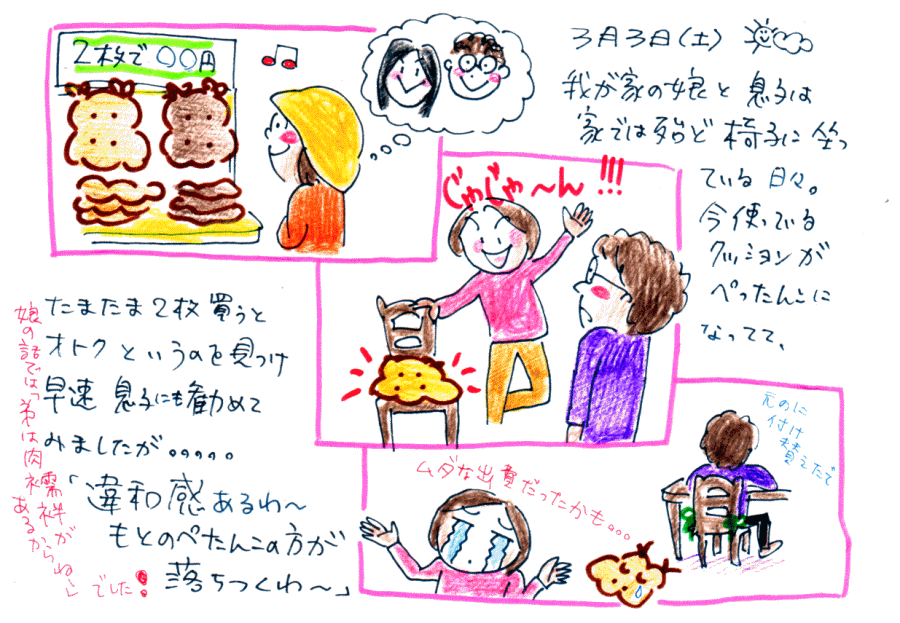 3月3日(土)
我が家の娘と息子は
家では殆ど椅子に坐っ
ている日々。
今使っている
クッションが
ぺったんこに
なってて、
2枚で〇〇円
じゃじゃ〜ん!!!
たまたま2枚買うと
オトクというのを見つけ
早速息子にも勧めて
みましたが。。。。。
「違和感あるわ〜
もとのぺたんこの方が
落ちつくわ〜」
でした!
娘の話では「弟は肉襦袢が
あるからね」
ムダな出費だったかも。。。
元のに
付け
替えたで